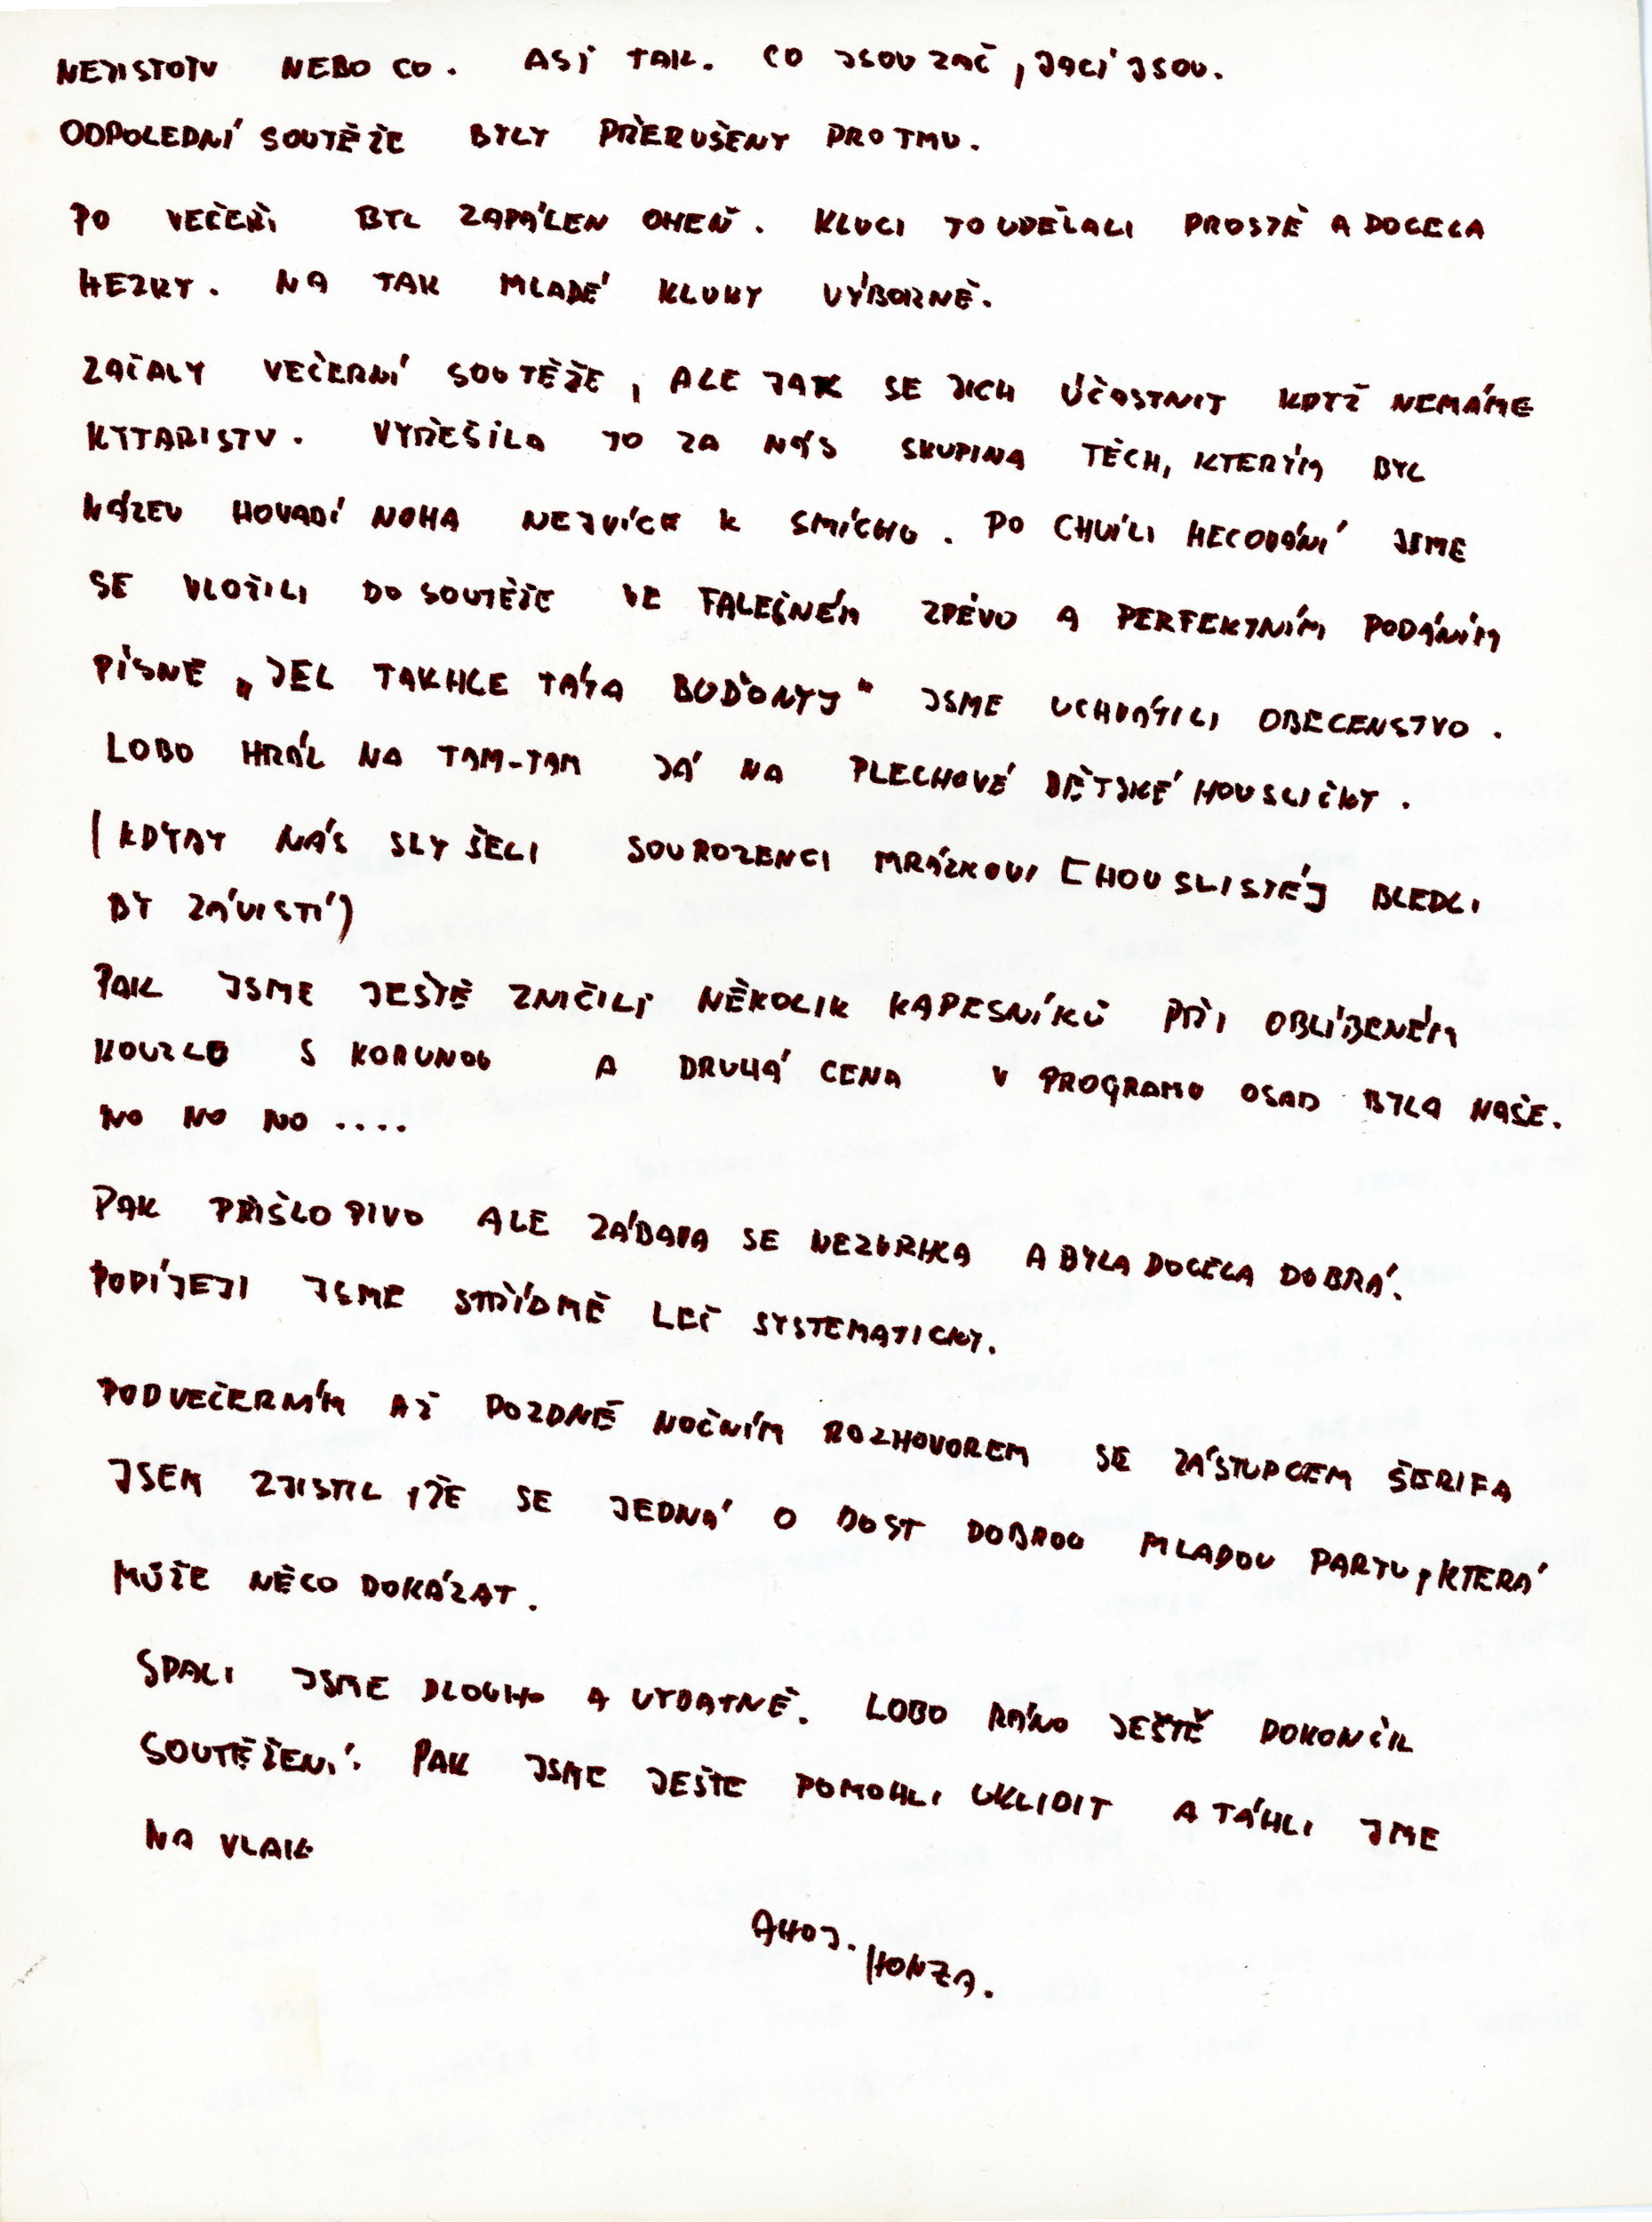 NEJISTOTU NEBO CO. ASI TAK. CO JSOU ZAČ, JACÍ JSOU.
ODPOLEDNÍ SOUTĚŽE BYLY PŘERUŠENY PRO TMU.
PO VEČEŘI BYL ZAPÁLEN OHEŇ. KLUCI TO UDĚLALI PROSTĚ A DOCELA
HEZKY. NA TAK MLADÉ KLUKY VÝBORNĚ.
ZAČALY VEČERNÍ SOUTĚŽE, ALE JAK SE JICH ÚČASTNIT KDYŽ NEMÁME
KYTARISTU. VYŘEŠILA TO ZA NÁS SKUPINA TĚCH, KTERÝM BYL
NÁZEV HOVADÍ NOHA NEJVÍCE K SMÍCHU. PO CHVÍLI HECOVÁNÍ JSME
SE VLOŽILI DO SOUTĚŽE VE FALEŠNÉM ZPĚVU A PERFEKTNÍM PODÁNÍM
PÍSNĚ „JEL TAKHLE TÁTA BUĎONYJ" JSME UCHVÁTILI OBECENSTVO.
LOBO HRÁL NA TAM-TAM JÁ NA PLECHOVÉ DĚTSKÉ HOUSLIČKY.
(KDYBY NÁS SLYŠELI SOUROZENCI MRÁZKOVI [HOUSLISTÉ] BLEDLI
BY ZÁVISTÍ)
PAK JSME JEŠTĚ ZNIČILI NĚKOLIK KAPESNÍKŮ PŘI OBLÍBENÉM
KOUZLU S KORUNOU A DRUHÁ CENA V PROGRAMU OSAD BYLA NAŠE.
NO NO NO ....
PAK PŘIŠLO PIVO ALE ZÁBAVA SE NEZVRHLA A BYLA DOCELA DOBRÁ.
POPÍJEJI JSME STŘÍDMĚ LEČ SYSTEMATICKY.
PODVEČERNÍM AŽ POZDNĚ NOČNÍM ROZHOVOREM SE ZÁSTUPCEM ŠERIFA
JSEM ZJISTIL, ŽE SE JEDNÁ O DOST DOBROU MLADOU PARTU, KTERÁ
MŮŽE NĚCO DOKÁZAT.
SPALI JSME DLOUHO A VYDATNĚ. LOBO RÁNO JEŠTĚ DOKONČIL
SOUTĚŽENÍ. PAK JSME JEŠTE POMOHLI UKLIDIT A TÁHLI JME
NA VLAK
AHOJ. HONZA.